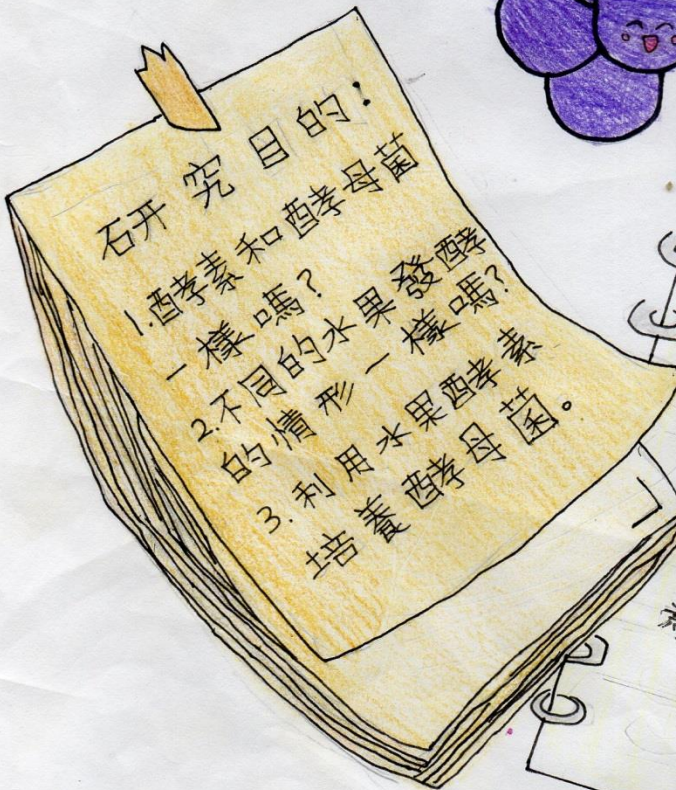 研究目的:
1.酵素和酵母菌
一樣嗎?
2.不同的水果發酵
的情形一樣嗎?
3.利用水果酵素
培養酵母菌。